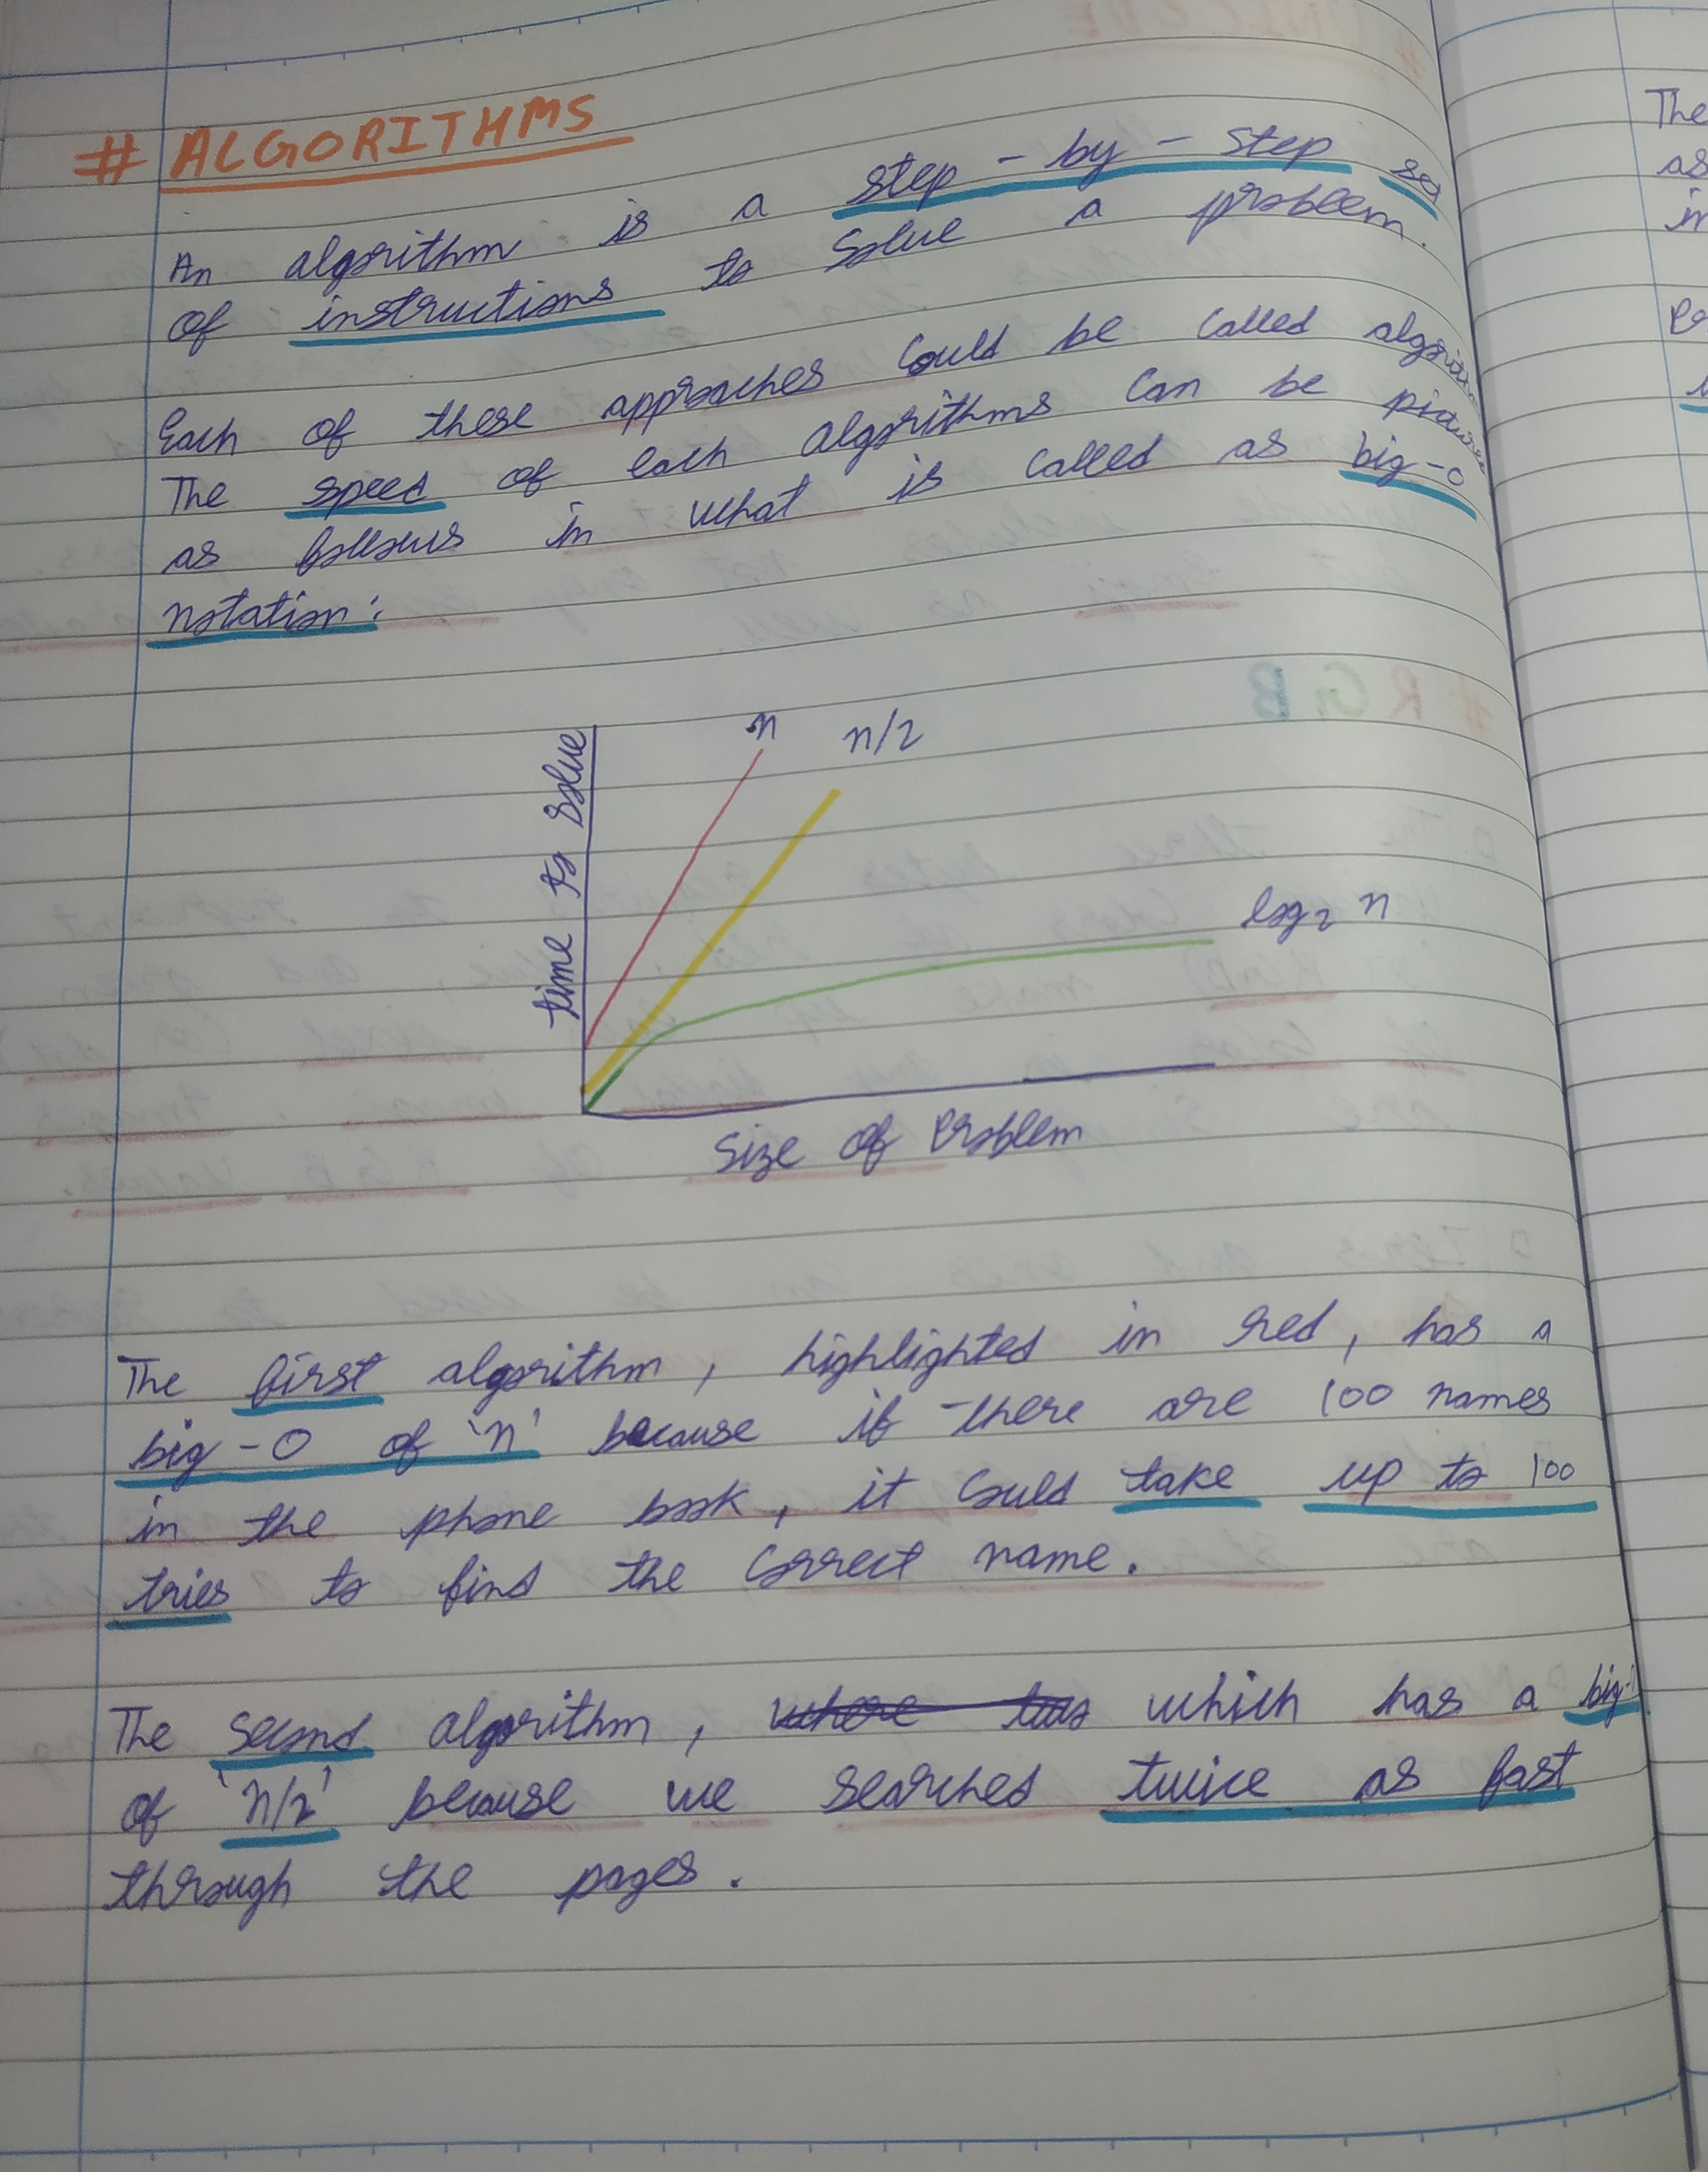 # ALGORITHMS
An algorithm is a step - by - step
of instructions to solve a problem.
Each of these approaches could be called
The speed of each algorithms can be
as follows in what is called as big-O
notation:
n n/2
time to solve
log2 n
Size of Problem
The first algorithm, highlighted in red, has a
big-O of 'n' because if there are 100 names
in the phone book, it could take up to 100
tries to find the correct name.
The second algorithm, which has a big-
of 'n/2' because we searched twice as fast
through the pages.
The
as
in